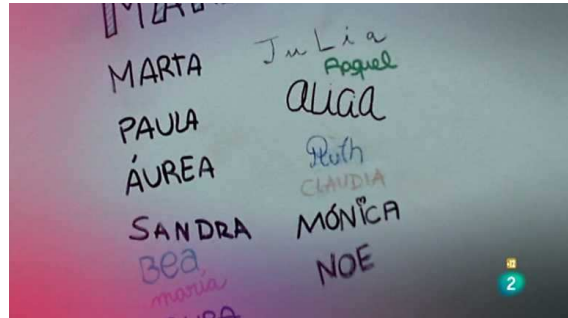 MARTA
PAULA
ÁUREA
SANDRA
Bea
maría
JuLia
Raquel
aLiCia
Ruth
CLAUDIA
MÓNICA
NOE
2